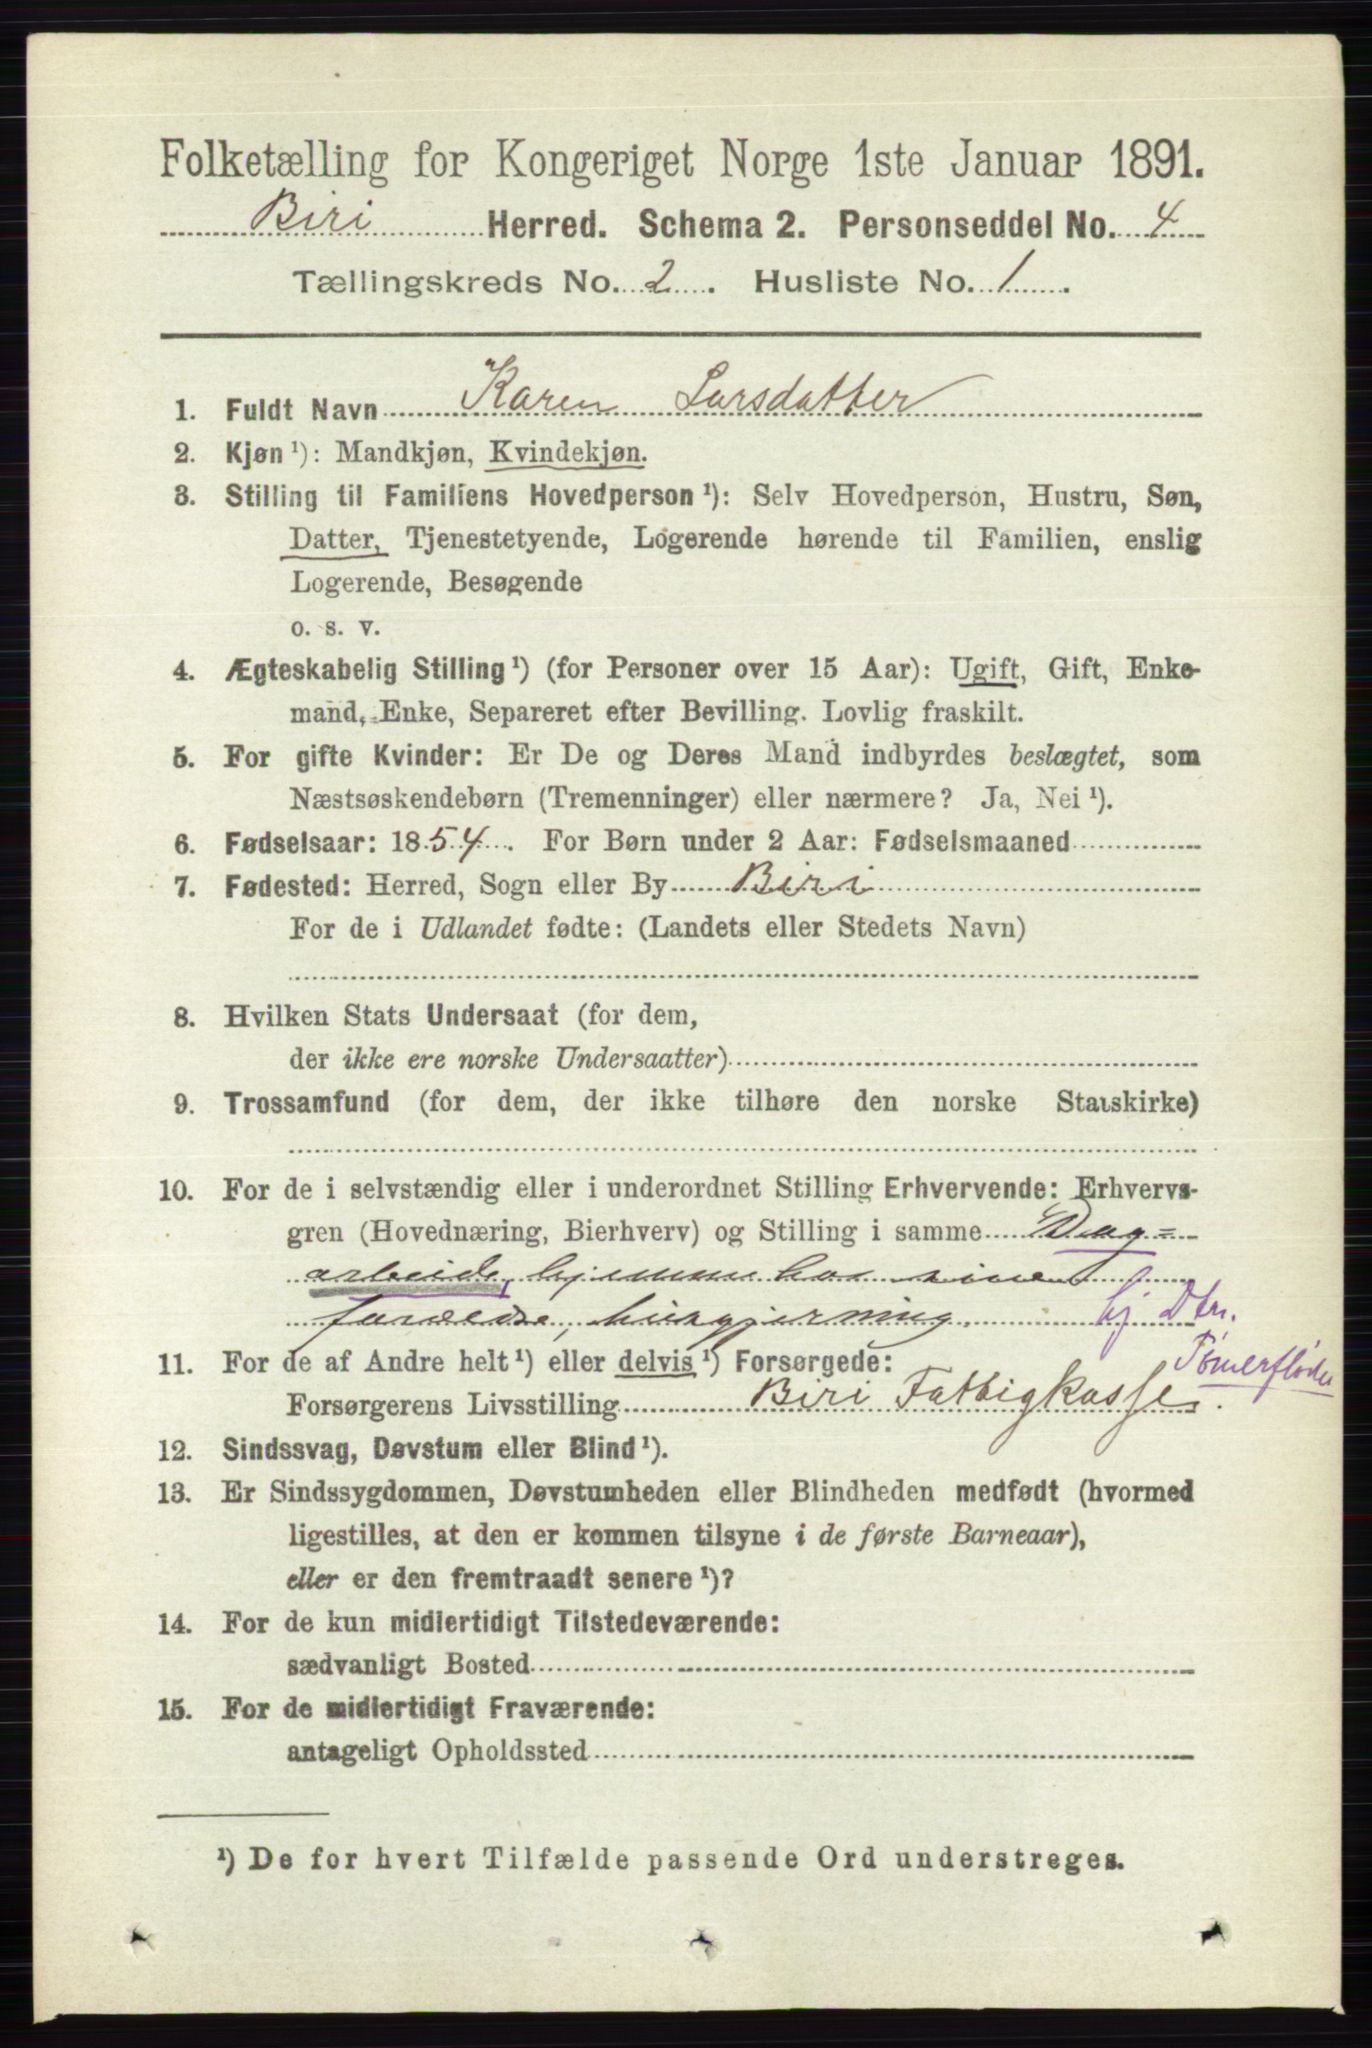 Folketælling for Kongeriget Norge 1ste Januar 1891.
Biri Herred. Schema 2. Personseddel No. 4
Tællingskreds No. 2. Husliste No. 1.
1. Fuldt Navn Karen Larsdatter
2. Kjøn ¹): Mandkjøn, Kvindekjøn.
3. Stilling til Familiens Hovedperson ¹): Selv Hovedperson, Hustru, Søn,
Datter, Tjenestetyende, Logerende hørende til Familien, enslig
Logerende, Besøgende
o. s. v.
4. Ægteskabelig Stilling ¹) (for Personer over 15 Aar): Ugift, Gift, Enke-
mand, Enke, Separeret efter Bevilling. Lovlig fraskilt.
5. For gifte Kvinder: Er De og Deres Mand indbyrdes beslægtet, som
Næstsøskendebørn (Tremenninger) eller nærmere? Ja, Nei ¹).
6. Fødselsaar: 1854. For Børn under 2 Aar: Fødselsmaaned
7. Fødested: Herred, Sogn eller By Biri
For de i Udlandet fødte: (Landets eller Stedets Navn)
8. Hvilken Stats Undersaat (for dem,
der ikke ere norske Undersaatter)
9. Trossamfund (for dem, der ikke tilhøre den norske Statskirke)
10. For de i selvstændig eller i underordnet Stilling Erhvervende: Erhvervs-
gren (Hovednæring, Bierhverv) og Stilling i samme Dag=
arbeide, hjemme hos sine
forældre, husgjerning. hj Dtr.
Tømerfløder
11. For de af Andre helt ¹) eller delvis ¹) Forsørgede:
Forsørgerens Livsstilling Biri Fattigkasse.
12. Sindssvag, Døvstum eller Blind ¹).
13. Er Sindssygdommen, Døvstumheden eller Blindheden medfødt (hvormed
ligestilles, at den er kommen tilsyne i de første Barneaar),
eller er den fremtraadt senere ¹)?
14. For de kun midlertidigt Tilstedeværende:
sædvanligt Bosted
15. For de midlertidigt Fraværende:
antageligt Opholdssted
¹) De for hvert Tilfælde passende Ord understreges.